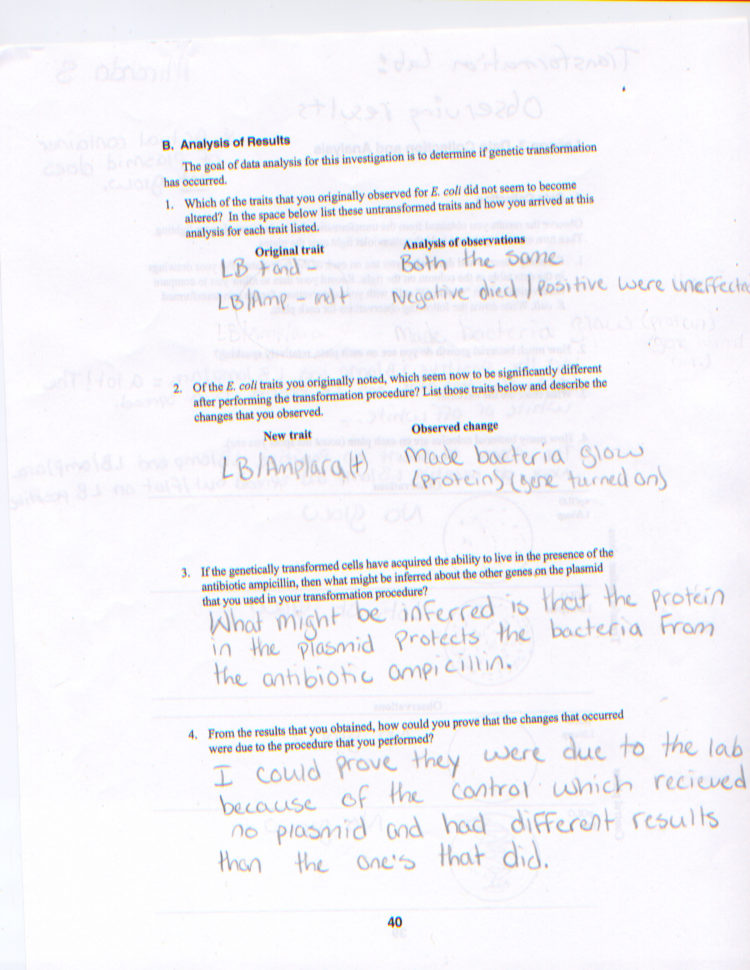 B. Analysis of Results
The goal of data analysis for this investigation is to determine if genetic transformation
has occurred.
1. Which of the traits that you originally observed for E. coli did not seem to become
altered? In the space below list these untransformed traits and how you arrived at this
analysis for each trait listed.
Original trait Analysis of observations
LB + and - Both the same
LB/Amp - and + Negative died / Positive were uneffecte
2. Of the E. coli traits you originally noted, which seem now to be significantly different
after performing the transformation procedure? List those traits below and describe the
changes that you observed.
New trait Observed change
LB/Amp/ara(+) Made bacteria glow
(protein) (gene turned on)
3. If the genetically transformed cells have acquired the ability to live in the presence of the
antibiotic ampicillin, then what might be inferred about the other genes on the plasmid
that you used in your transformation procedure?
What might be inferred is that the protein
in the plasmid protects the bacteria from
the antibiotic ampicillin.
4. From the results that you obtained, how could you prove that the changes that occurred
were due to the procedure that you performed?
I could prove they were due to the lab
because of the control which recieved
no plasmid and had different results
than the one's that did.
40